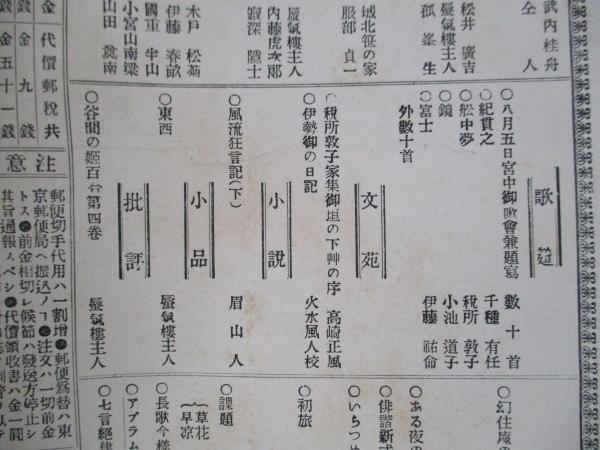 武内桂舟
仝人
松井廣吉
蜃氣樓主人
孤峯生
城北笹の家
服部貞一
蜃氣樓主人
内藤虎次郎
寂深隱士
木戸松菊
伊藤春畝
國重半山
小宮山南梁
山田蠖南
金
代價郵税共
金九錢
金五十一錢
歌筵
○八月五日宮中御歌會兼題寫
數十首
○紀貫之
千種有任
○舩中夢
税所敦子
○鏡
小池道子
○富士
伊藤祐命
外數十首
文苑
○税所敦子家集御垣の下艸の序
高崎正風
○伊勢御の日記
火水風人校
小說
○風流狂言記(下)
眉山人
小品
○東西
蜃氣樓主人
批評
○谷間の姬百合第四巻
蜃氣樓主人
注意
郵便切手代用ハ一割增●郵便爲替ハ東
京郵便局ヘ振込ノコ●注文ハ一切前金
トス●前金相切レ候節ハ發送方停止シ
其旨通報スベシ●代價領收書ハ金一圓
○幻住庵の
○ある夜の
○俳諧新式
○いちつめ
○初旅
○課題
草花
早凉
○長歌今様
○アブラム
○七言絕律